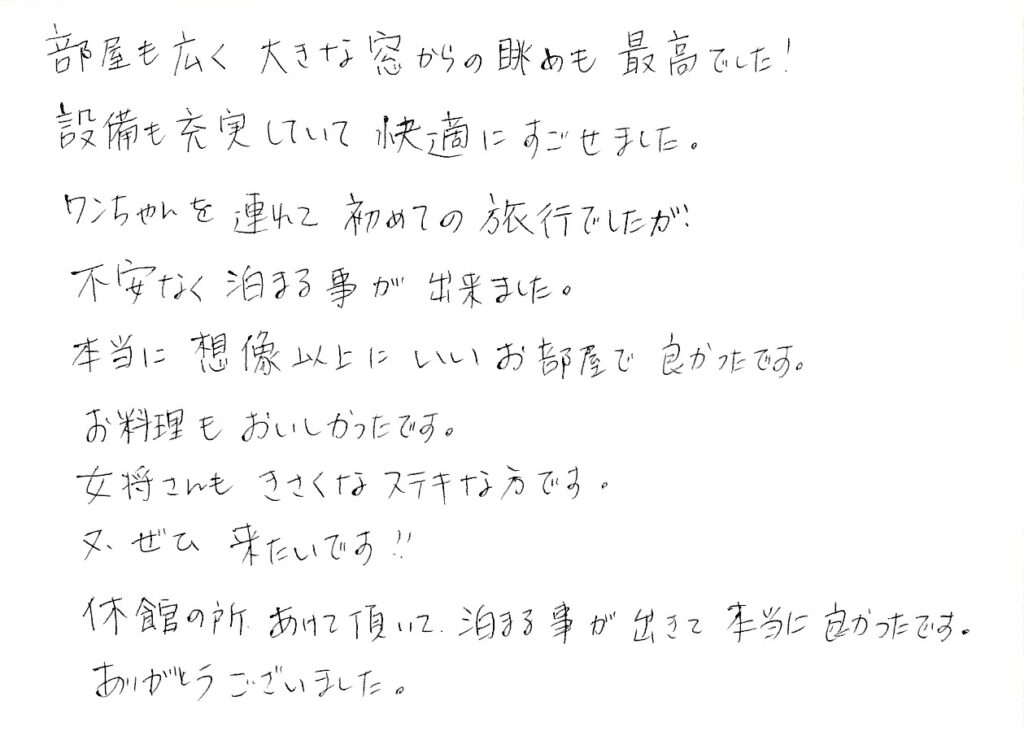 部屋も広く 大きな窓からの眺めも 最高でした!
設備も充実していて 快適にすごせました。
ワンちゃんを 連れて 初めての 旅行でしたが、
不安なく 泊まる事が 出来ました。
本当に 想像以上に いいお部屋で 良かったです。
お料理も おいしかったです。
女将さんも きさくな ステキな方です。
又、ぜひ 来たいです!!
休館の所、あけて頂いて、泊まる事が 出きて 本当に 良かったです。
ありがとうございました。